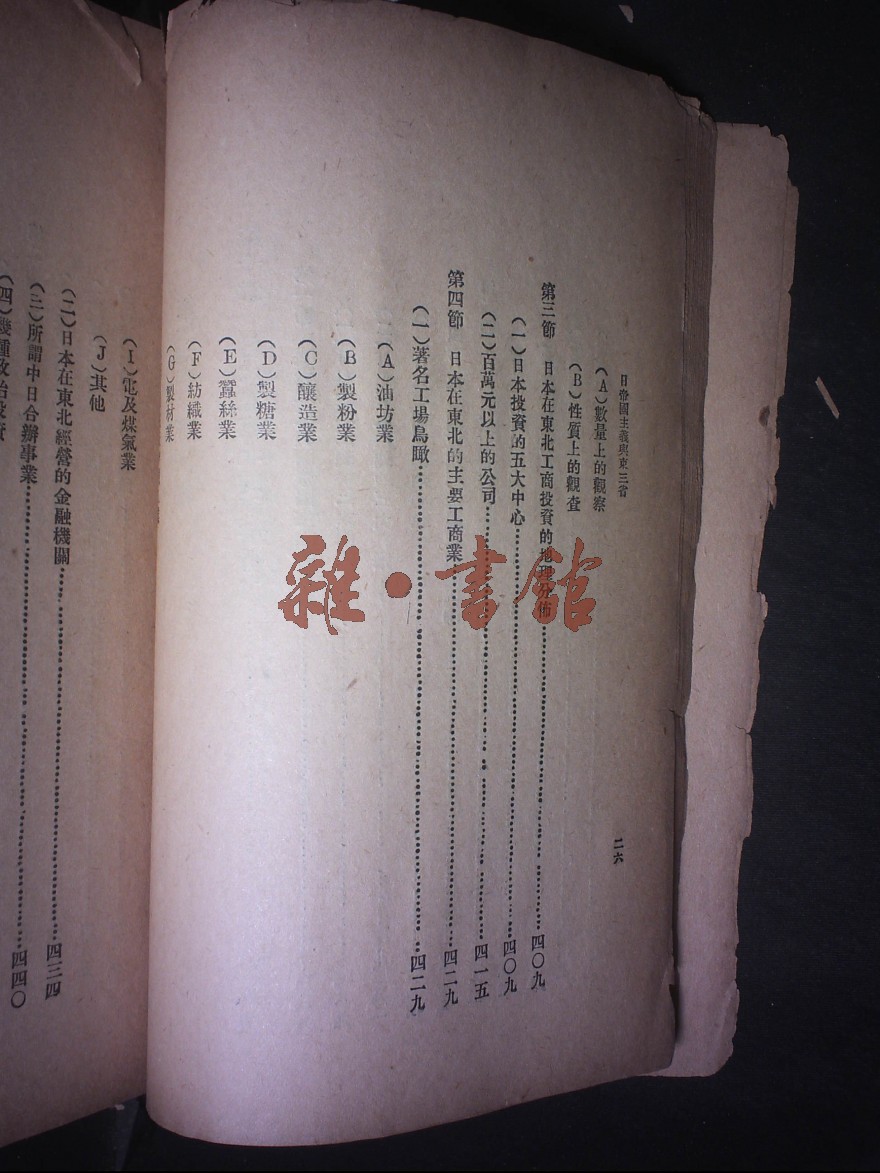 日帝國主義與東三省
二六
（A）數量上的觀察
（B）性質上的觀查
第三節　日本在東北工商投資的地理分佈…………四〇九
（一）日本投資的五大中心…………四〇九
（二）百萬元以上的公司…………四一五
第四節　日本在東北的主要工商業…………四二九
（一）著名工場鳥瞰…………四二九
（A）油坊業
（B）製粉業
（C）釀造業
（D）製糖業
（E）蠶絲業
（F）紡織業
（G）製材業
（I）電及煤氣業
（J）其他
（二）日本在東北經營的金融機關…………四三四
（三）所謂中日合辦事業…………四四〇
（四）幾種政治投資
雜·書館